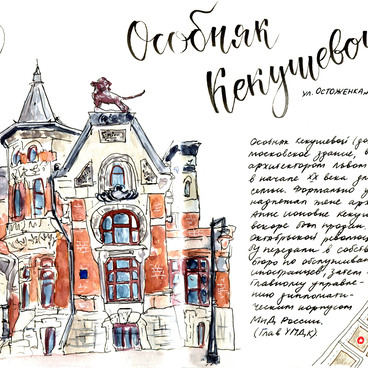 Особняк
Кекушевой
ул. Остоженка,
Особняк Кекушевой (за
московское здание, в
архитектором Львом
в начале XX века дл
семьи. Формально у
надлежал жене арх
Анне Ионовне Кекуш
вскоре был продан.
Октябрьской революц
БУ передали в собств
бюро по обслужива
иностранцев, затем -
Главному управле-
нию дипломати-
ческим корпусом
МИД России.
(Глав УПДК).